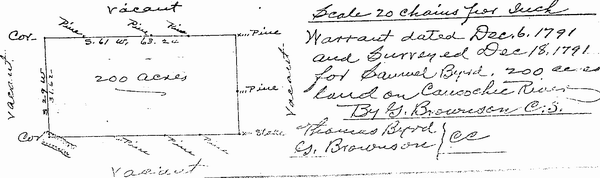 Vacant
Pine Pine Pine
Cor. S.61 W. 63.24 Pine
200 acres
Vacant
S 29 W
31.62
Pine
Vacant
Cor Stake
Pine Pine Pine
Vacant
Scale 20 chains per Inch
Warrant dated Dec. 6. 1791
and Surveyed Dec 18, 1791
for Samuel Byrd. 200 acres
land on Canoochie River
By G. Brownson C.S.
Thomas Byrd
G. Brownson } CC